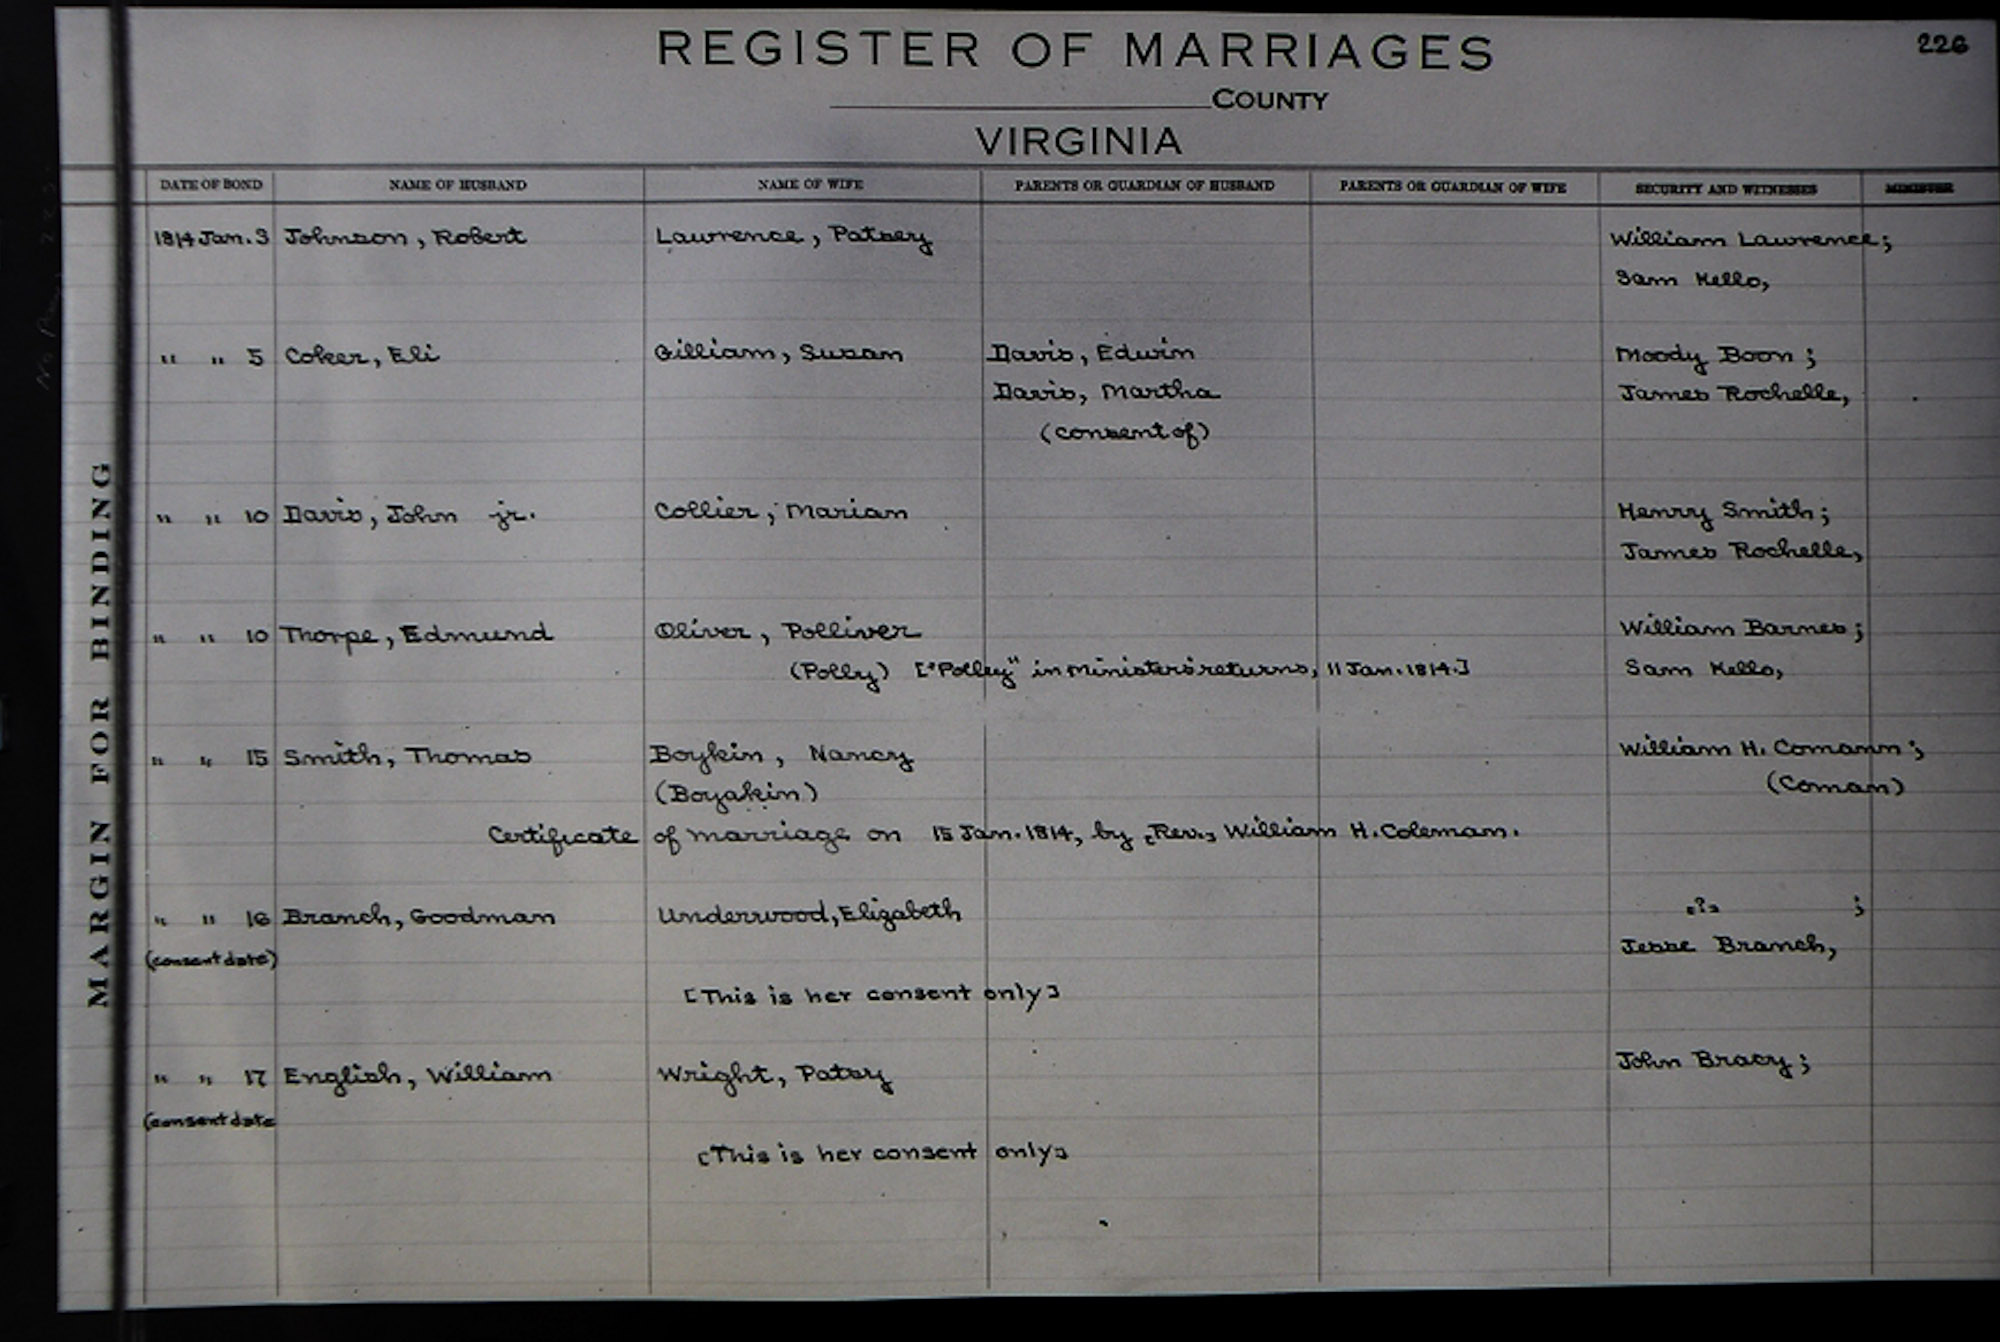 REGISTER OF MARRIAGES
226
COUNTY
VIRGINIA
DATE OF BOND NAME OF HUSBAND NAME OF WIFE PARENTS OR GUARDIAN OF HUSBAND PARENTS OR GUARDIAN OF WIFE SECURITY AND WITNESSES MINISTER
1814 Jan. 3 Johnson, Robert Lawrence, Patsey William Lawrence;
Sam Kello,
" " 5 Coker, Eli Gilliam, Susan Davis, Edwin Moody Boon;
Davis, Martha James Rochelle,
(consent of)
" " 10 Davis, John jr. Collier, Marian Henry Smith;
James Rochelle,
" " 10 Thorpe, Edmund Oliver, Polliver William Barnes;
(Polly) ["Polley" in Ministers' returns, 11 Jan. 1814.] Sam Kello,
" " 15 Smith, Thomas Boykin, Nancy William H. Comann;
(Boyakin) (Coman)
Certificate of marriage on 15 Jan. 1814, by [Rev.] William H. Coleman.
" " 16 Branch, Goodman Underwood, Elizabeth [?] ;
(consent date) Jesse Branch,
[This is her consent only]
" " 17 English, William Wright, Patsy John Bracy;
(consent date
[This is her consent only]
MARGIN FOR BINDING